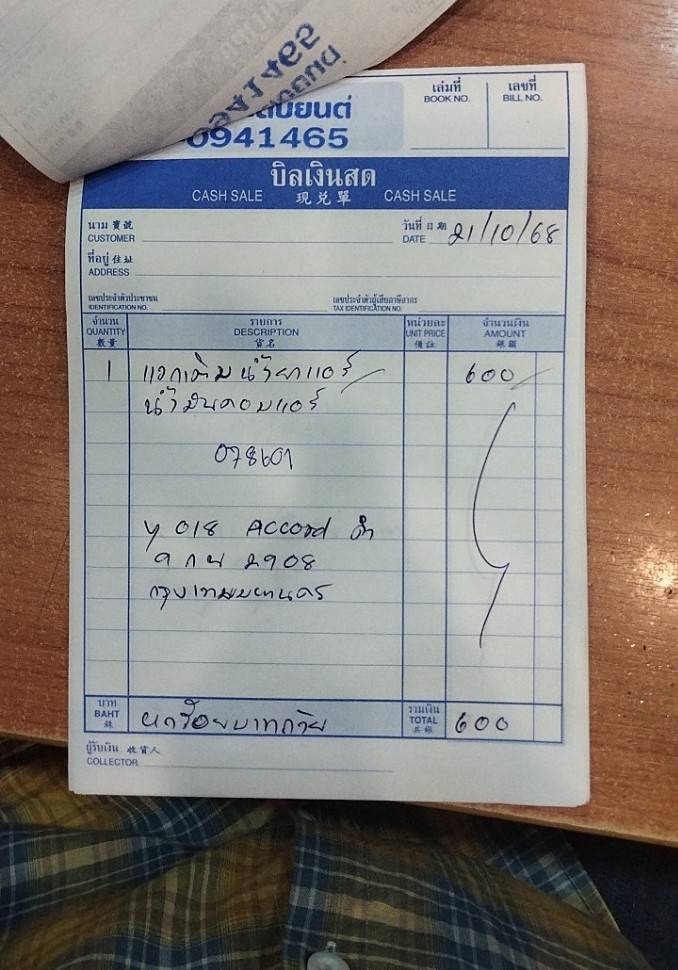 0941465
เล่มที่ BOOK NO.
เลขที่ BILL NO.
บิลเงินสด
CASH SALE 現兌單 CASH SALE
นาม 寶號 CUSTOMER
วันที่ 日期 DATE 21/10/68
ที่อยู่ 住址 ADDRESS
เลขประจำตัวประชาชน IDENTIFICATION NO.
เลขประจำตัวผู้เสียภาษีอากร TAX IDENTIFICATION NO.
จำนวน QUANTITY 數量
รายการ DESCRIPTION 貨名
หน่วยละ UNIT PRICE 備註
จำนวนเงิน AMOUNT 銀額
1 แวกเติมน้ำยาแอร์ 600
น้ำมันคอมแอร์
078601
Y 018 Accord ดำ
9 กน 2908
กรุงเทพมหานคร
บาท BAHT 銖 หกร้อยบาทถ้วย
รวมเงิน TOTAL 共銀 600
ผู้รับเงิน 收貨人 COLLECTOR